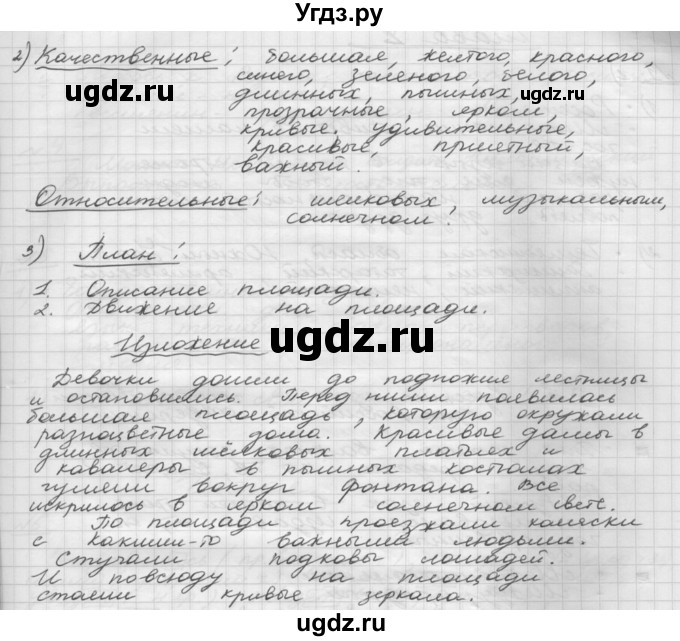 Угдз.ру
2) Качественные: большая, желтого, красного,
синего, зеленого, белого,
длинных, пышных,
прозрачные, ярком,
кривые, удивительные,
красивые, приметный,
важный.
Относительные: шелковых, музыкальным,
солнечном.
3) План:
1. Описание площади.
2. Движение на площади.
Изложение
Девочки дошли до подножия лестницы
и остановились. Перед ними появилась
большая площадь, которую окружали
разноцветные дома. Красивые дамы в
длинных шёлковых платьях и
кавалеры в пышных костюмах
гуляли вокруг фонтана. Все
искрилось в ярком солнечном свете.
По площади проезжали коляски
с какими-то важными людьми.
Стучали подковы лошадей.
И повсюду на площади
стояли кривые зеркала.
ugdz.ru
ugdz.ru
ugdz.ru
ugdz.ru
ugdz.ru
ugdz.ru
Угдз.ру